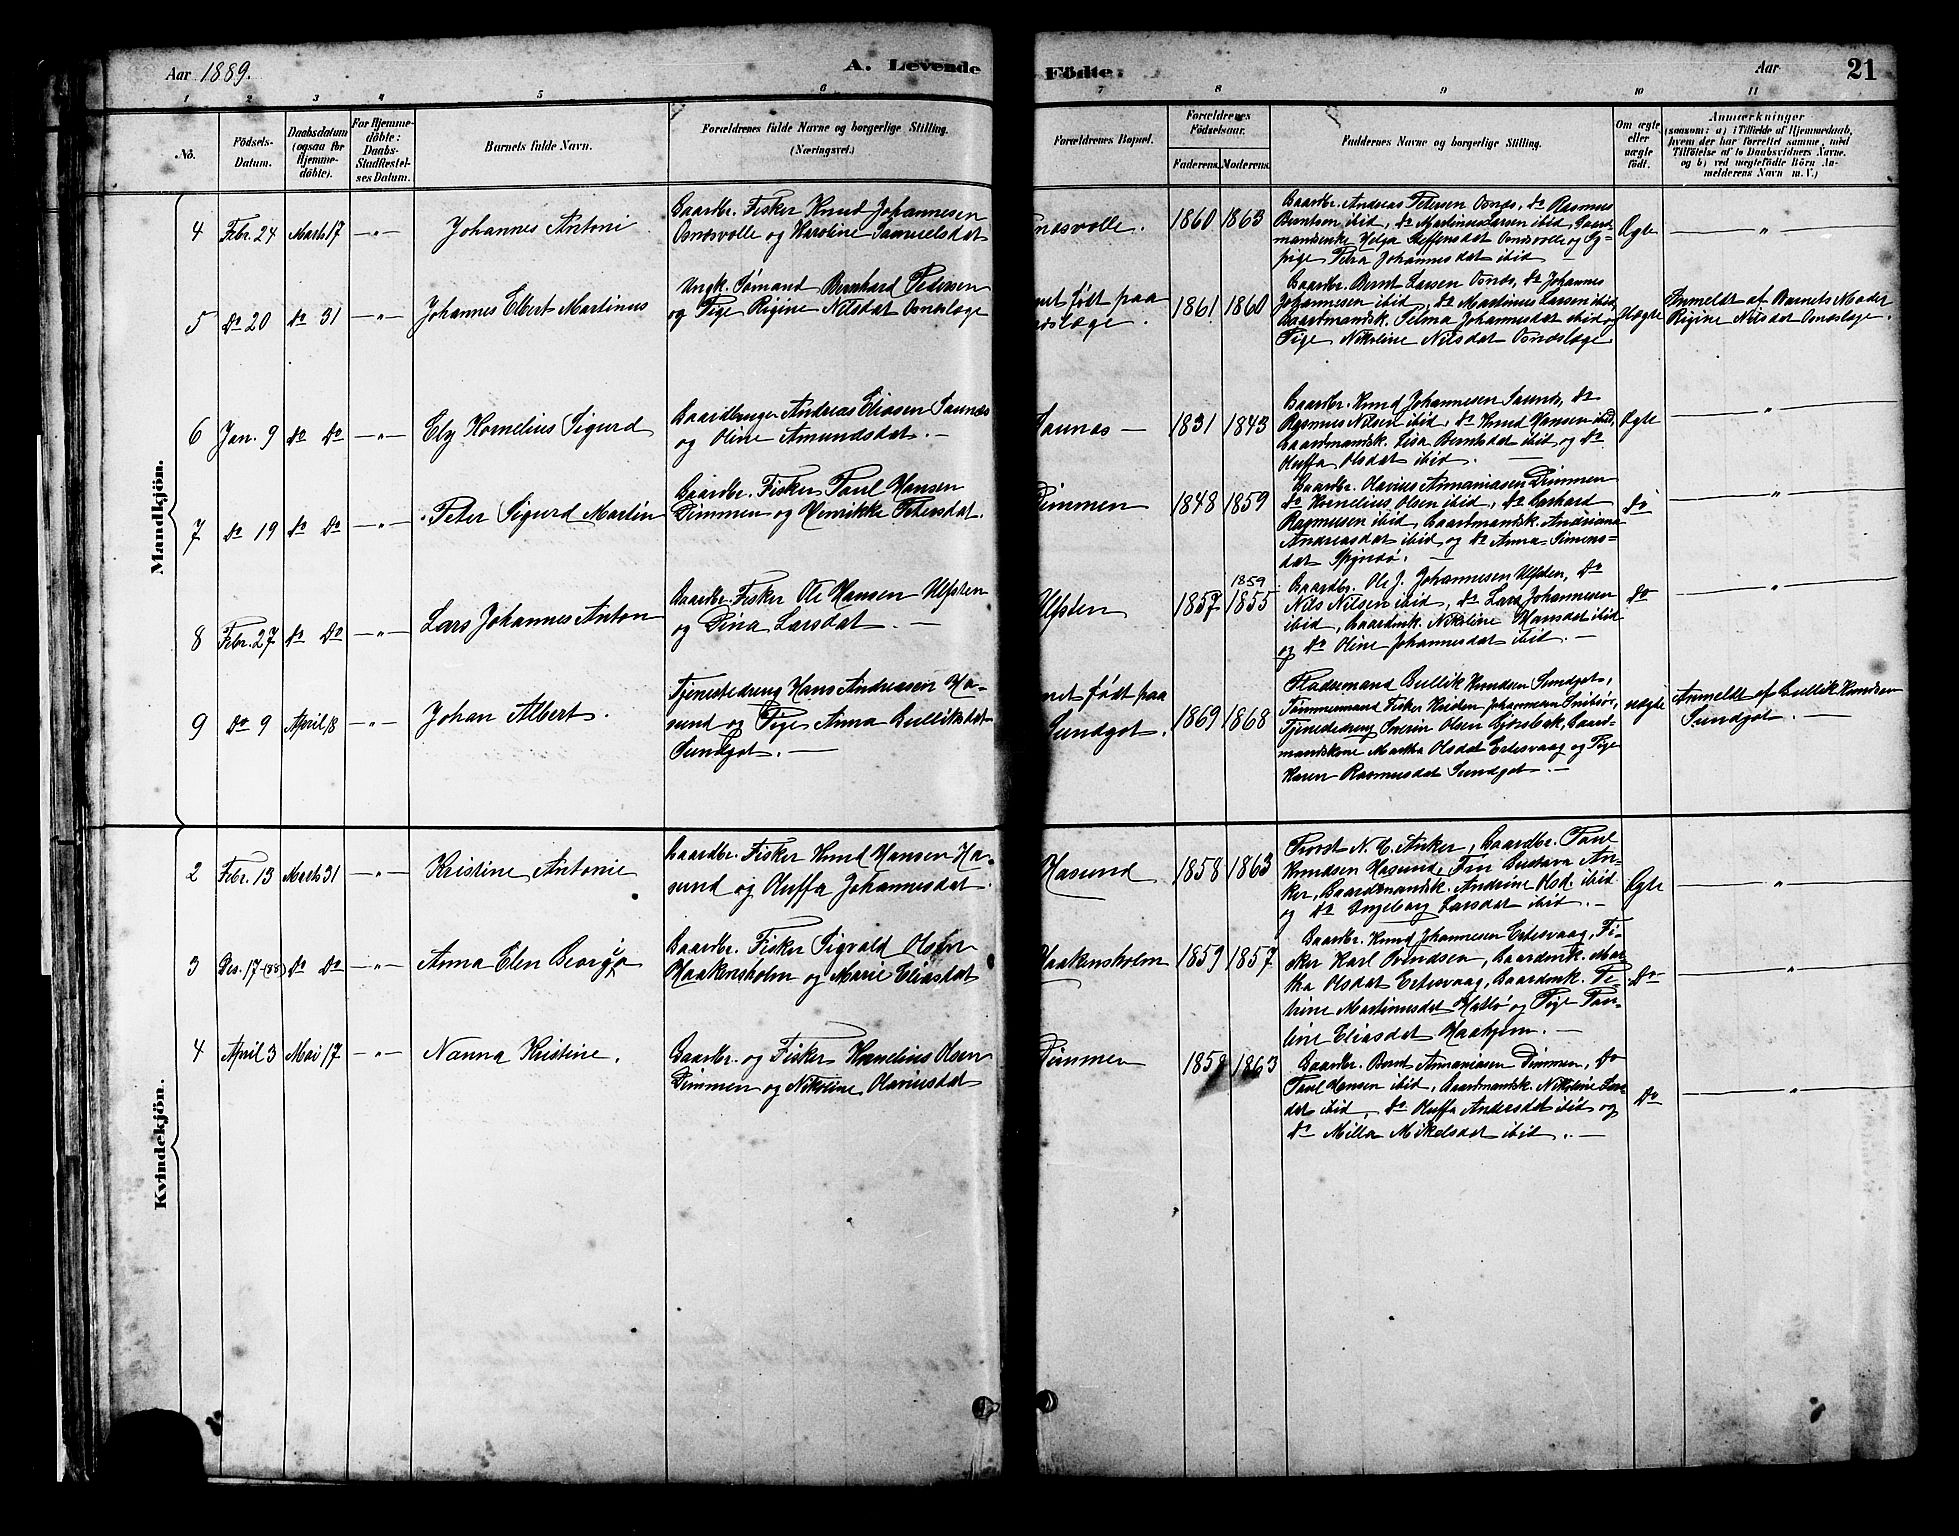 Aar 1889.
A. Levende
Födte.
Aar
21
1 2 3 4 5 6 7 8 9 10 11
No.
Födsels-
Datum.
Daabsdatum
(ogsaa for
Hjemme-
döbte).
For Hjemme-
döbte:
Daabs-
Stadfæstel-
ses Datum.
Barnets fulde Navn.
Forældrenes fulde Navne og borgerlige Stilling.
(Næringsvei.)
Forældrenes Bopæl.
Forældrenes
Födselsaar.
Faderens. Moderens.
Faddernes Navne og borgerlige Stilling.
Om ægte
eller
uægte
födt.
Anmærkninger
(saasom: a) i Tilfælde af Hjemmedaab,
hvem der har forrettet samme, med
Tilföielse af to Daabsvidners Navne,
og b) ved uægtefödte Börn An-
melderens Navn m. V.)
Mandkjön.
4 Febr. 24 Marts 17 -"- Johannes Antoni
Gaardbr. Fisker Knud Johannesen
Osnæsvolle og Karoline Samuelsdat
næsvolle. 1860 1863
Gaardbr. Andreas Petersen Osnæs, Do Rasmus
Berntsen ibid, Do Martinus Larsen ibid, Gaard-
mandsenke Helga Steffensdat Osnæsvolle og
pige Petra Johannesdat ibid
Ægte "
5 Do 20 Do 31 -"- Johannes Elbert Martinus
Ungk. Sømand Bernhard Pedersen
og Pige Rigine Nilsdat Osnæslæge
født paa
læge. 1861 1860
Gaardbr. Bernt Larsen Osnæs, Do Johannes
Johannesen ibid, Do Martinus Larsen ibid
Gaardmandsk. Johannesdat ibid og
Pige Nikoline Nilsdat Osnæslæge
Uægte Anmeldt af Barnets Moder
Rigine Nilsdat Osnæslæge.
6 Jan. 9 Do Do -"- Ely Kornelius Sigurd
Gaardbruger Andreas Eliasen Saunæs
og Oline Amundsdat. -
Saunæs - 1831 1843
Gaardbr. Knud Johannesen Saunæs, Do
Rasmus Nilsen ibid, Do Knud Hansen ibid,
Gaardmandsk. Lisa Berntsdat ibid og Do
Oluffa Olsdat ibid.
Ægte "
7 Do 19 Do Do -"- Peter Sigurd Martin
Gaardbr. Fisker Paul Hansen
Dimmen og Henrikke Petersdat.
Dimmen 1848 1859
Gaardbr. Olavius Ananiasen Dimmen
Do Kornelius Olsen ibid, Do
Rasmusen ibid, Gaardmandsk. Andriana
Andreasdat ibid og Do Anna Simons-
dat
Do "
8 Febr. 27 Do Do -"- Lars Johannes Anton
Gaardbr. Fisker Ole Hansen Ulfsten
og Dina Larsdat. -
Ulfsten 1857 1859 1855
Gaardbr. Ole J. Johannesen Ulfsten, Do
Nils Nilsen ibid, Do Lars Johannesen
ibid, Gaardmk. Nikoline Hansdat ibid
og Do Oline Johannesdat ibid. -
Do "
9 Do 9 April 18 -"- Johan Albert.
Tjenestedreng Hans Andreasen Ha-
sund og Pige Anna Gulliksdat
Sundgot. -
født paa
Sundgot. 1869 1868
Pladsmand Gullik Knudsen Sundgot,
Tømmermand Fisker Johannsen
Tjenestedreng Severin Olsen Gjørsbak, Gaard-
mandskone Martha Olsdat Ertesvaag og Pige
Karen Rasmusdat Sundgot. -
uægte Anmeldt af Gullik Knudsen
Sundgot. -
Kvindekjön.
2 Febr. 13 Marts 31 -"- Kristine Antonie
Gaardbr. Fisker Knud Hansen Ha-
sund og Oluffa Johannesdat.
Hasund 1858 1863
Provst N. C. Anker, Gaardbr. Paul
Knudsen Hasund, Fru Gustava An-
ker, Gaardmandsk. Andrine Olsd. ibid
og Do Ingeborg Larsdat ibid. -
Ægte "
3 Des. 17 (88) Do Do -"- Anna Elen Georgia
Gaardbr. Fisker Sigvald Olsen
Haakensholm og Marie Eliasdat
Haakensholm 1859 1857
Gaardbr. Knud Johannesen Ertesvaag, Fi-
sker Karl Svendsen, Gaardmk. Mar-
tha Olsdat Ertesvaag, Gaardmk. Pe-
trine Martinusdat Hatlø og Pige Pau-
line Eliasdat Haakjem. -
Do "
4 April 3 Mai 17 -"- Nanna Kristine.
Gaardbr. og Fisker Kornelius Olsen
Dimmen og Nikoline Olaviusdat
Dimmen 1858 1863
Gaardbr. Bernt Ananiasen Dimmen, Do
Paul Hansen ibid, Gaardmandsk. Nikoline
dat ibid, Do Oluffa Andersdat ibid og
Do Milla Mikelsdat ibid. -
Do "